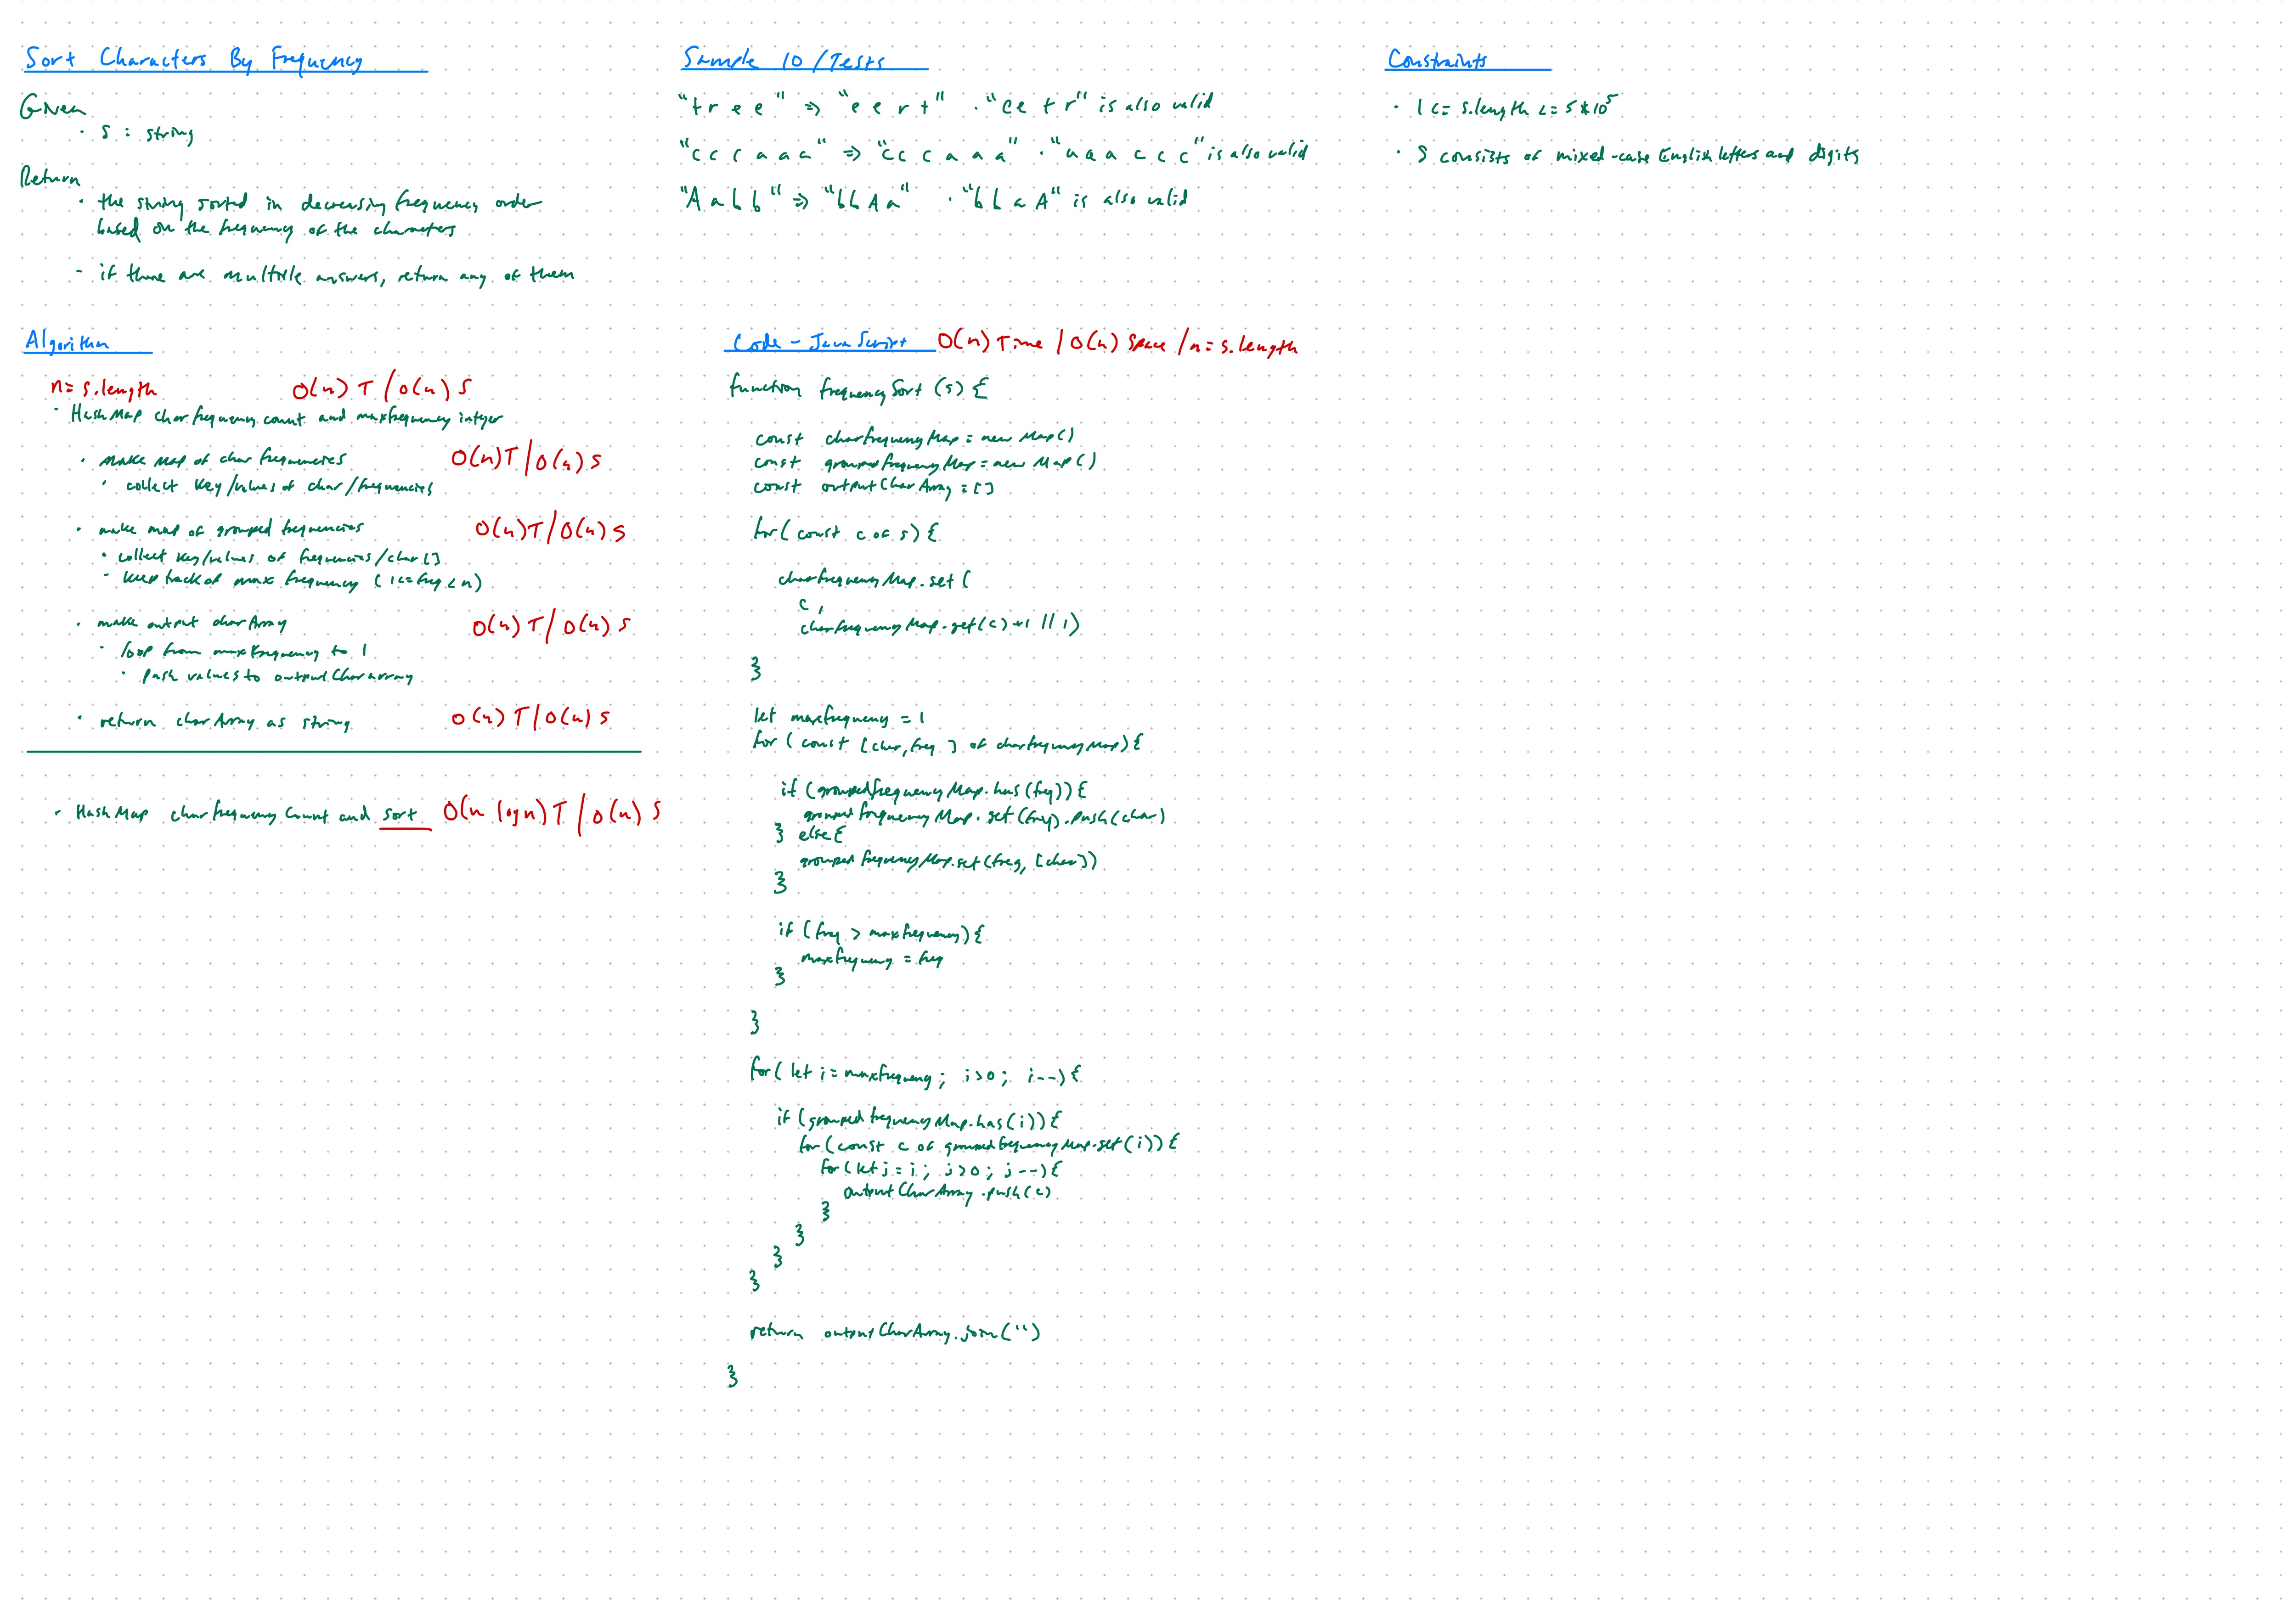 Sort Characters By Frequency
Given
· S : string
Return
· the string sorted in decreasing frequency order
based on the frequency of the characters
- if there are multiple answers, return any of them
Sample IO / Tests
"tree" => "eert" · "eetr" is also valid
"cccaaa" => "cccaaa" · "aaaccc" is also valid
"Aabb" => "bbAa" · "bbaA" is also valid
Constraints
· 1 <= s.length <= 5*10^5
· S consists of mixed-case English letters and digits
Algorithm
n = s.length O(n) T / O(n) S
· HashMap char frequency count and maxfrequency integer
· make map of char frequencies O(n) T / O(n) S
· collect key/values of char/frequencies
· make map of grouped frequencies O(n) T / O(n) S
· collect key/values of frequencies/char[]
· keep track of max frequency (1<=freq<n)
· make output charArray O(n) T / O(n) S
· loop from maxfrequency to 1
· push values to outputChararray
· return charArray as string O(n) T / O(n) S
· HashMap charfrequency Count and sort O(n log n) T / O(n) S
Code - JavaScript O(n) Time / O(n) Space / n = s.length
function frequencySort (s) {
const charfrequencyMap = new Map()
const groupedfrequencyMap = new Map()
const outputCharArray = []
for( const c of s) {
charfrequencyMap.set(
c,
charfrequencyMap.get(c) +1 || 1)
}
let maxfrequency = 1
for ( const [char, freq ] of charfrequencyMap) {
if (groupedfrequencyMap.has(freq)) {
groupedfrequencyMap.get(freq).push(char)
} else {
groupedfrequencyMap.set(freq, [char])
}
if (freq > maxfrequency) {
maxfrequency = freq
}
}
for( let i = maxfrequency; i>0; i--) {
if (groupedfrequencyMap.has(i)) {
for (const c of groupedfrequencyMap.get(i)) {
for (let j = i; j>0; j--) {
outputCharArray.push(c)
}
}
}
}
return outputCharArray.join('')
}